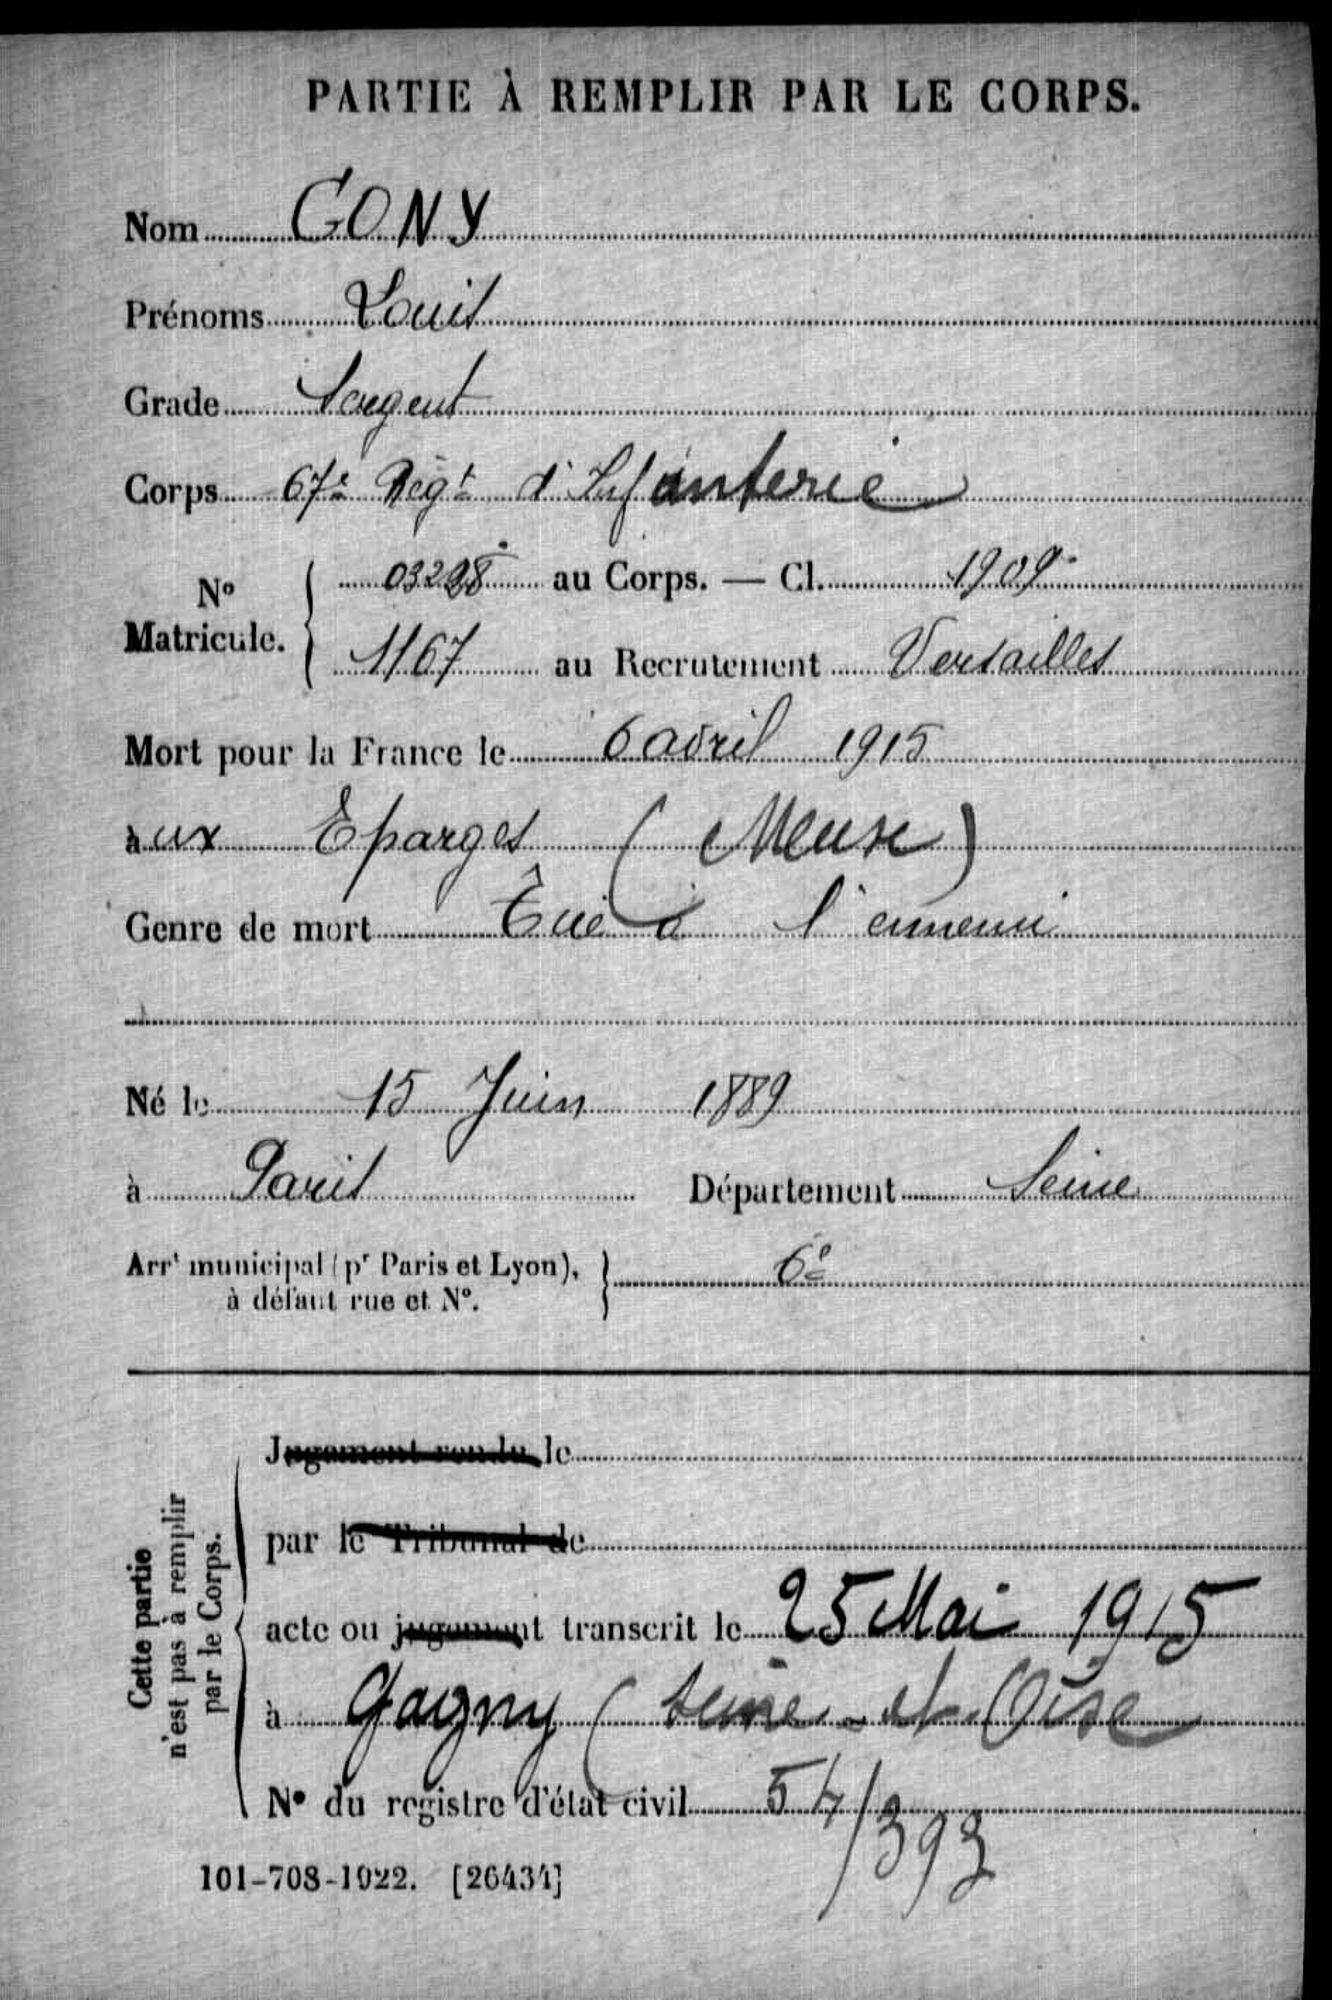 PARTIE À REMPLIR PAR LE CORPS.
Nom GONY
Prénoms Louis
Grade Sergent
Corps 67e Régt d'Infanterie
No Matricule. { 03228 au Corps. — Cl. 1909
1167 au Recrutement Versailles
Mort pour la France le 6 avril 1915
aux Eparges (Meuse)
Genre de mort Tué à l'ennemi
Né le 15 Juin 1889
à Paris Département Seine
Arrt municipal (pr Paris et Lyon), } 6e
à défaut rue et No.
Cette partie
n'est pas à remplir
par le Corps.
Jugement rendu le
par le Tribunal de
acte ou jugement transcrit le 25 Mai 1915
à Gagny (Seine-et-Oise
No du registre d'état civil 54/393
101-708-1922. [26434]